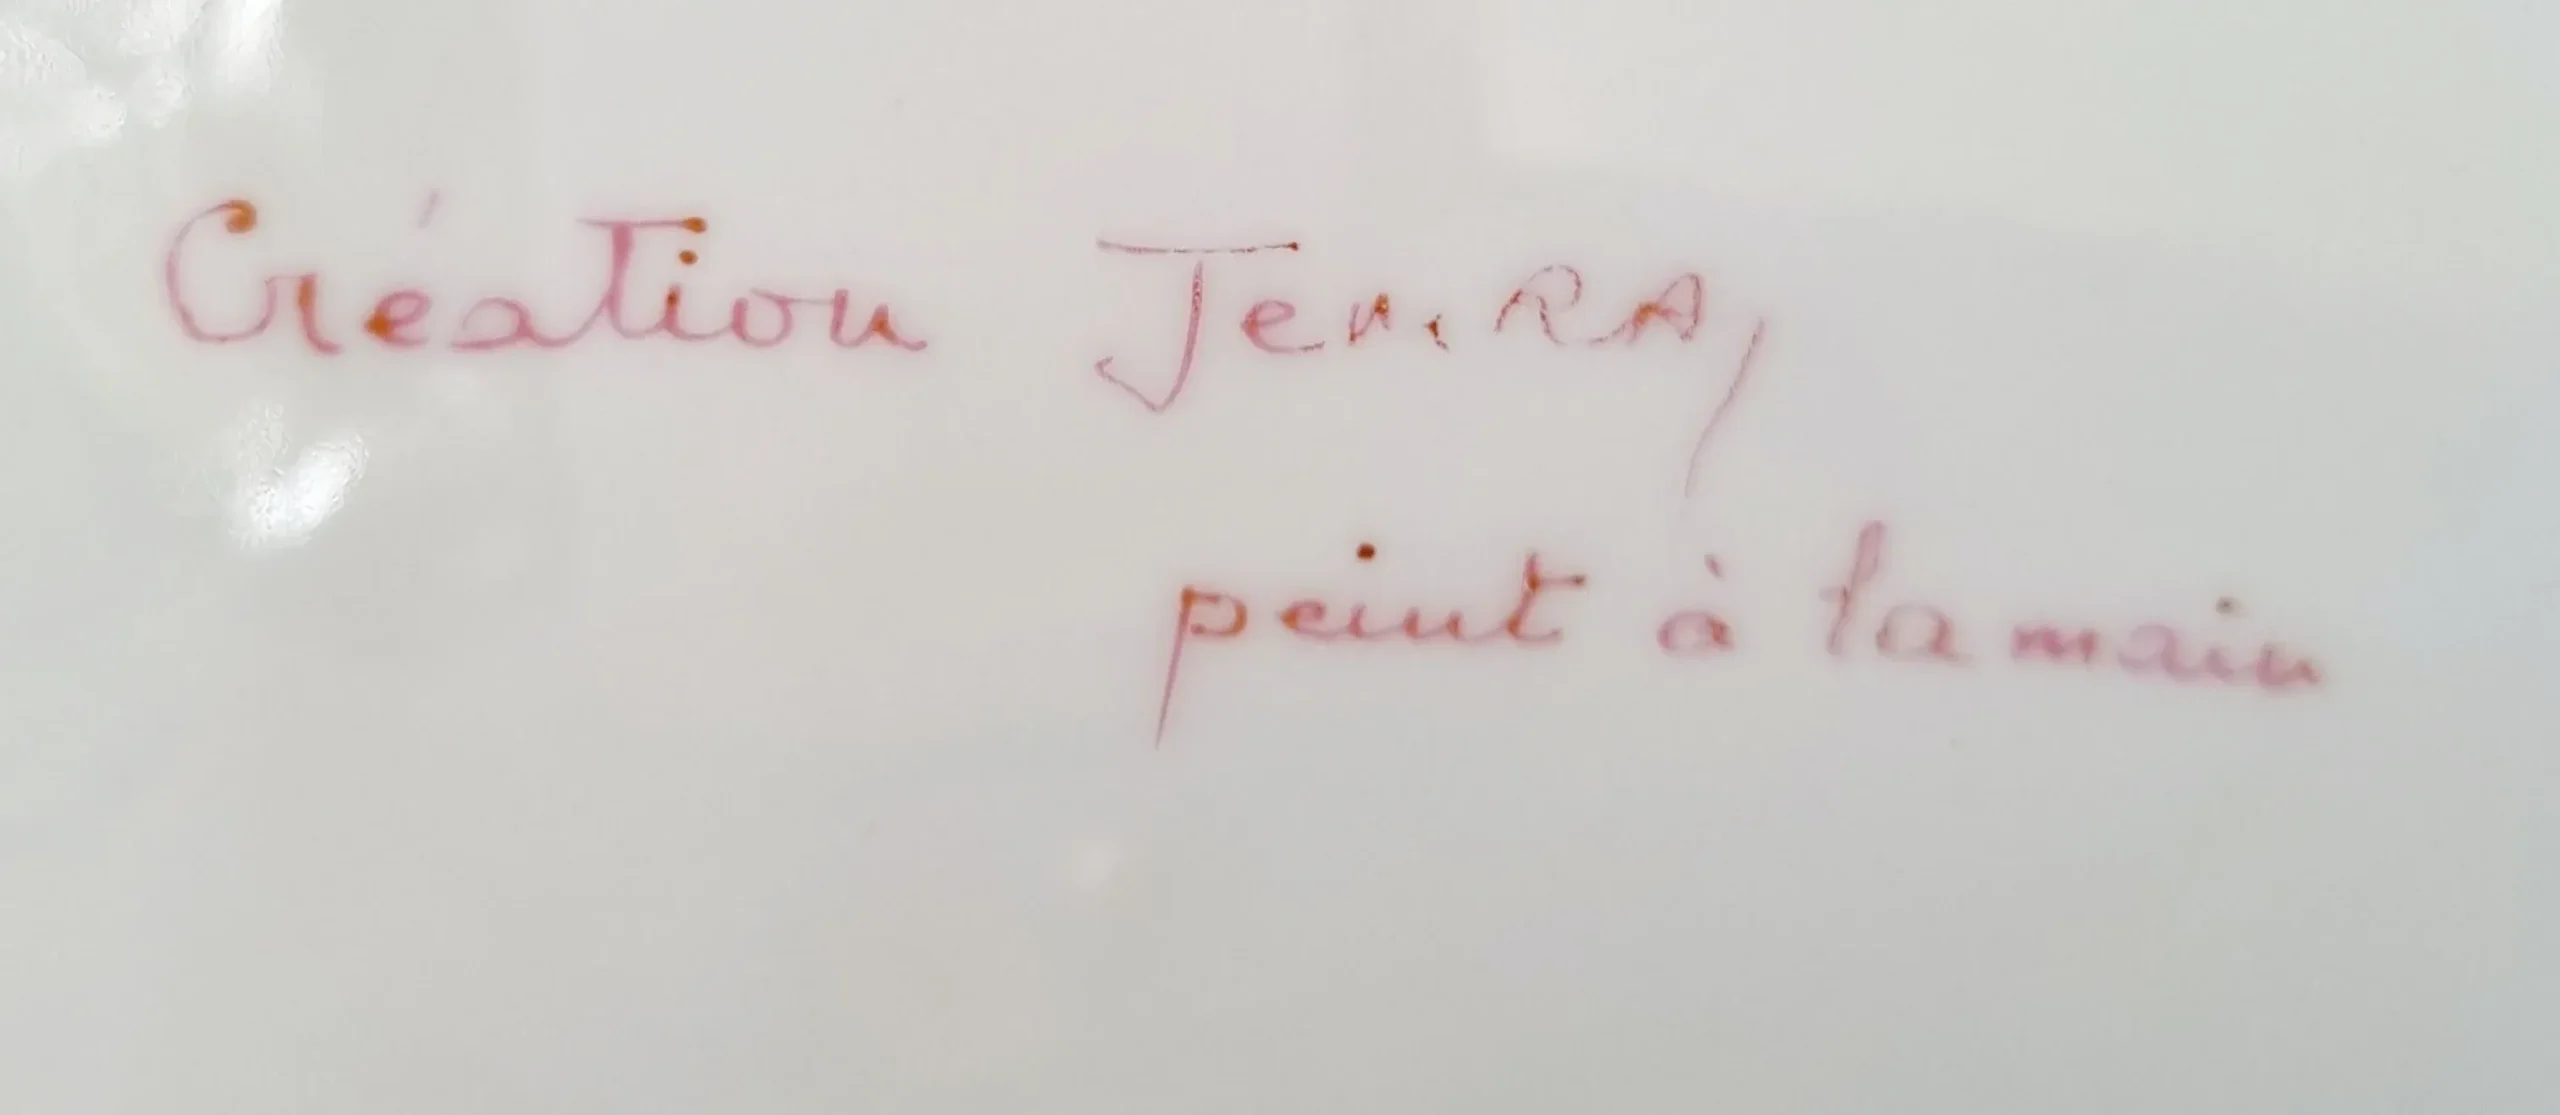 Création Jen.RA,
peint à la main